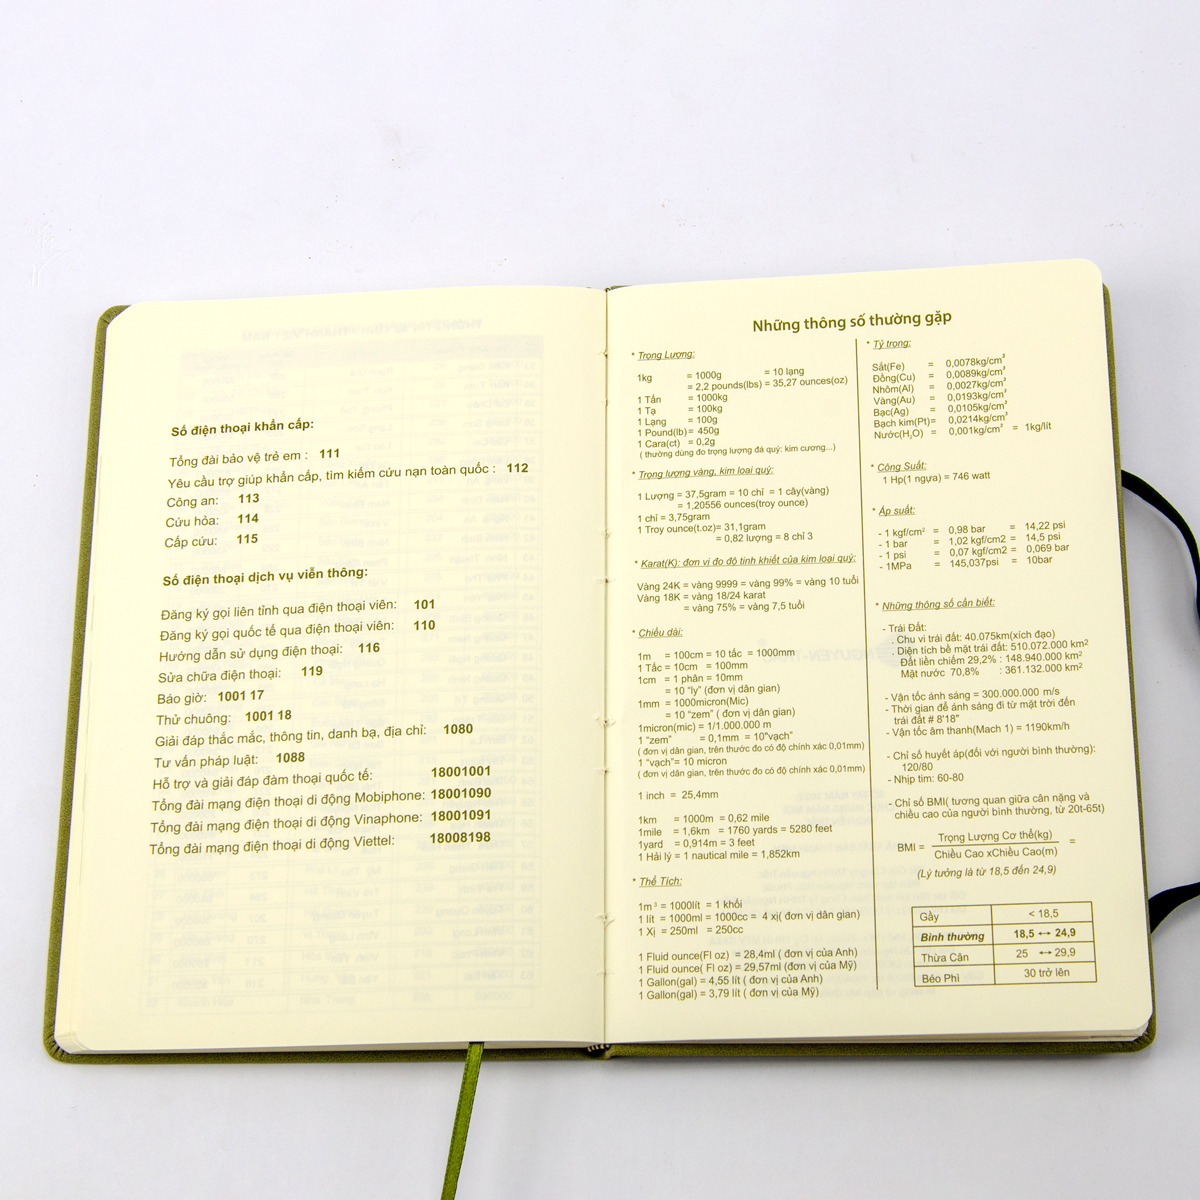 Số điện thoại khẩn cấp:
Tổng đài bảo vệ trẻ em : 111
Yêu cầu trợ giúp khẩn cấp, tìm kiếm cứu nạn toàn quốc : 112
Công an: 113
Cứu hỏa: 114
Cấp cứu: 115
Số điện thoại dịch vụ viễn thông:
Đăng ký gọi liên tỉnh qua điện thoại viên: 101
Đăng ký gọi quốc tế qua điện thoại viên: 110
Hướng dẫn sử dụng điện thoại: 116
Sửa chữa điện thoại: 119
Báo giờ: 1001 17
Thử chuông: 1001 18
Giải đáp thắc mắc, thông tin, danh bạ, địa chỉ: 1080
Tư vấn pháp luật: 1088
Hỗ trợ và giải đáp đàm thoại quốc tế: 18001001
Tổng đài mạng điện thoại di động Mobiphone: 18001090
Tổng đài mạng điện thoại di động Vinaphone: 18001091
Tổng đài mạng điện thoại di động Viettel: 18008198
Những thông số thường gặp
* Trọng Lượng:
1kg = 1000g = 10 lạng
= 2,2 pounds(lbs) = 35,27 ounces(oz)
1 Tấn = 1000kg
1 Tạ = 100kg
1 Lạng = 100g
1 Pound(lb)= 450g
1 Cara(ct) = 0,2g
( thường dùng đo trọng lượng đá quý: kim cương...)
* Trọng lượng vàng, kim loại quý:
1 Lượng = 37,5gram = 10 chỉ = 1 cây(vàng)
= 1,20556 ounces(troy ounce)
1 chỉ = 3,75gram
1 Troy ounce(t.oz)= 31,1gram
= 0,82 lượng = 8 chỉ 3
* Karat(K): đơn vị đo độ tinh khiết của kim loại quý:
Vàng 24K = vàng 9999 = vàng 99% = vàng 10 tuổi
Vàng 18K = vàng 18/24 karat
= vàng 75% = vàng 7,5 tuổi
* Chiều dài:
1m = 100cm = 10 tấc = 1000mm
1 Tấc = 10cm = 100mm
1cm = 1 phân = 10mm
= 10 "ly" (đơn vị dân gian)
1mm = 1000micron(Mic)
= 10 "zem" ( đơn vị dân gian)
1micron(mic) = 1/1.000.000 m
1 "zem" = 0,1mm = 10"vạch"
( đơn vị dân gian, trên thước đo có độ chính xác 0,01mm)
1 "vạch"= 10 micron
( đơn vị dân gian, trên thước đo có độ chính xác 0,01mm)
1 inch = 25,4mm
1km = 1000m = 0,62 mile
1mile = 1,6km = 1760 yards = 5280 feet
1yard = 0,914m = 3 feet
1 Hải lý = 1 nautical mile = 1,852km
* Thể Tích:
1m³ = 1000lít = 1 khối
1 lít = 1000ml = 1000cc = 4 xị( đơn vị dân gian)
1 Xị = 250ml = 250cc
1 Fluid ounce(Fl oz) = 28,4ml ( đơn vị của Anh)
1 Fluid ounce( Fl oz) = 29,57ml (đơn vị của Mỹ)
1 Gallon(gal) = 4,55 lít ( đơn vị của Anh)
1 Gallon(gal) = 3,79 lít ( đơn vị của Mỹ)
* Tỷ trọng:
Sắt(Fe) = 0,0078kg/cm³
Đồng(Cu) = 0,0089kg/cm³
Nhôm(Al) = 0,0027kg/cm³
Vàng(Au) = 0,0193kg/cm³
Bạc(Ag) = 0,0105kg/cm³
Bạch kim(Pt)= 0,0214kg/cm³
Nước(H₂O) = 0,001kg/cm³ = 1kg/lít
* Công Suất:
1 Hp(1 ngựa) = 746 watt
* Áp suất:
- 1 kgf/cm² = 0,98 bar = 14,22 psi
- 1 bar = 1,02 kgf/cm2 = 14,5 psi
- 1 psi = 0,07 kgf/cm2 = 0,069 bar
- 1MPa = 145,037psi = 10bar
* Những thông số cần biết:
- Trái Đất:
. Chu vi trái đất: 40.075km(xích đạo)
. Diện tích bề mặt trái đất: 510.072.000 km²
Đất liền chiếm 29,2% : 148.940.000 km²
Mặt nước 70,8% : 361.132.000 km²
- Vận tốc ánh sáng = 300.000.000 m/s
- Thời gian để ánh sáng đi từ mặt trời đến
trái đất # 8'18"
- Vận tốc âm thanh(Mach 1) = 1190km/h
- Chỉ số huyết áp(đối với người bình thường):
120/80
- Nhịp tim: 60-80
- Chỉ số BMI( tương quan giữa cân nặng và
chiều cao của người bình thường, từ 20t-65t)
BMI = Trọng Lượng Cơ thể(kg) =
Chiều Cao xChiều Cao(m)
(Lý tưởng là từ 18,5 đến 24,9)
Gầy < 18,5
Bình thường 18,5 ↔ 24,9
Thừa Cân 25 ↔ 29,9
Béo Phì 30 trở lên